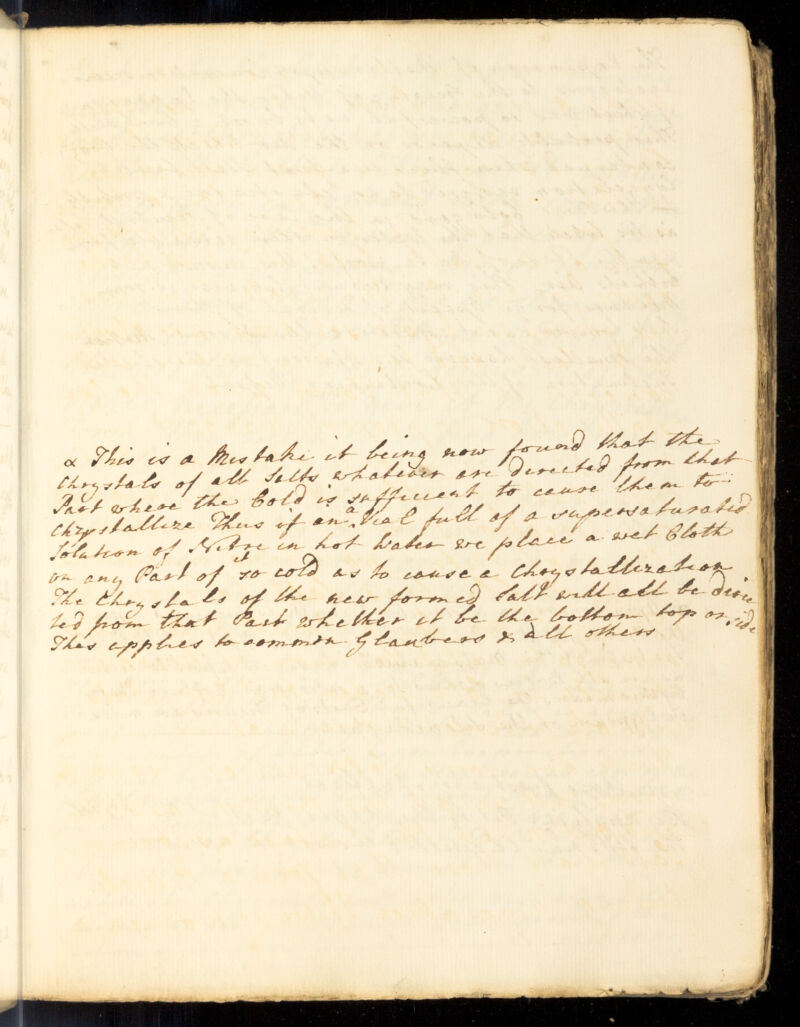 α This is a Mistake it being now found that the
Chrystals of all Salts whatever are directed from that
Part where the Cold is sufficient to cause them to
Chrystallize Thus if an a Vial full of a supersaturated
Solution of Nitre in hot Water we place a wet Cloth
on any Part of it so cold as to cause a Chrystallization
The Chrystals of the new formed Salt will all be direc
ted from that Part whether it be the bottom top or side
This applies to common Glaubers & all others